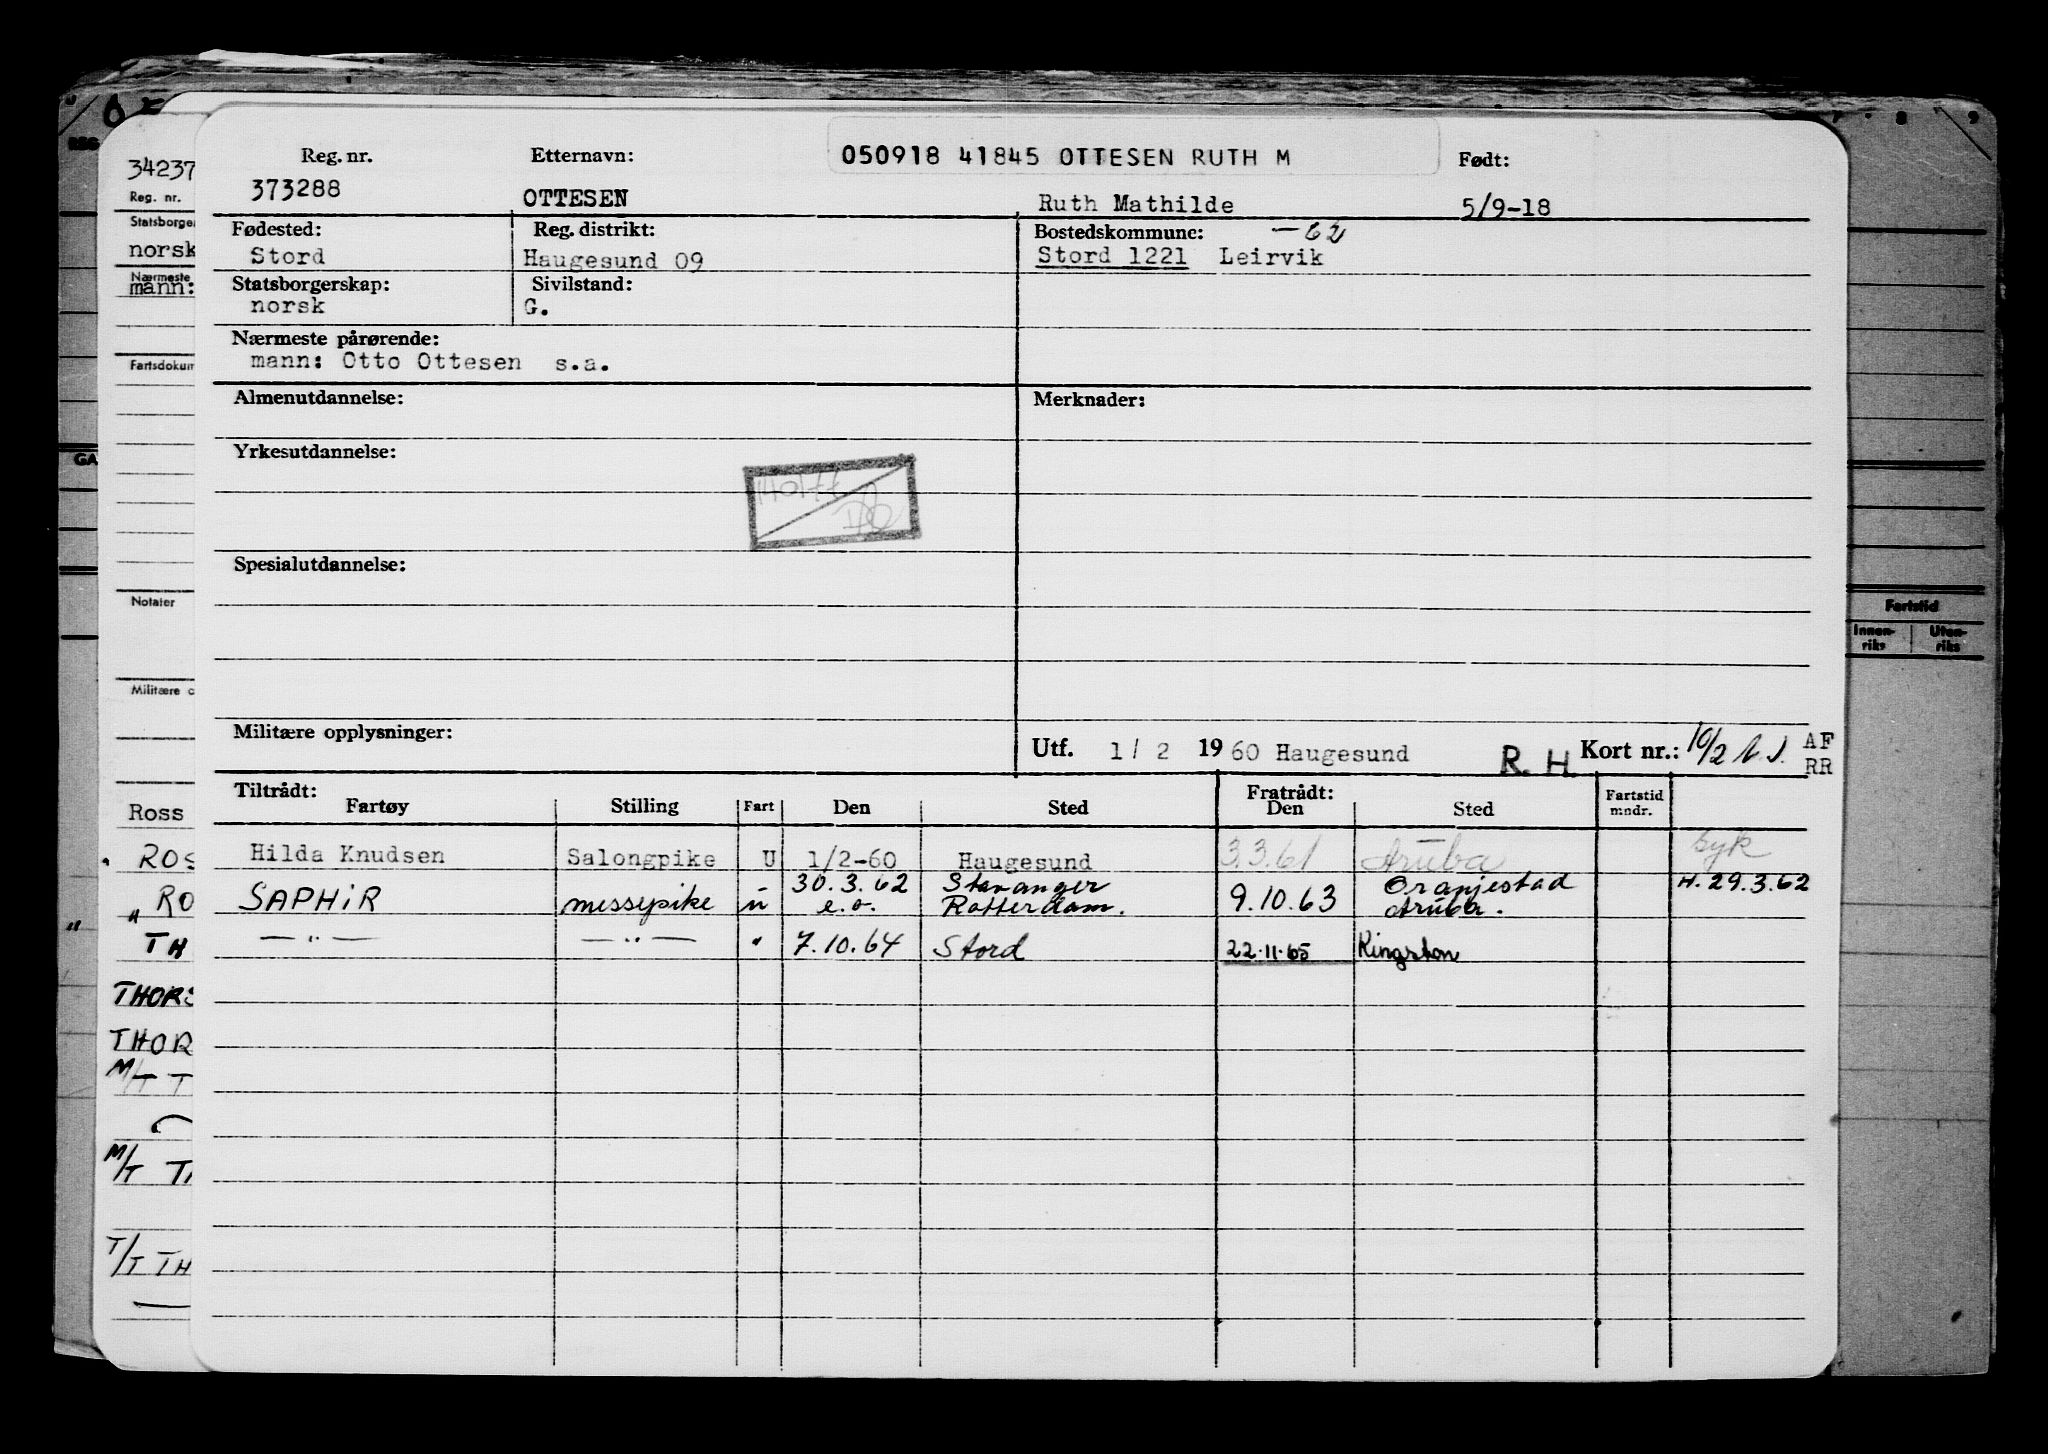 34237
Reg. nr.
Statsborger
norsk
Nærmeste
mann:
Fartsdokum
Notater
Militære o
Ross
ROS
" RO
TH
THORS
THOR
M/T T
M/T
T/T TH
REG
GA
8 9
Fartstid
Innen-riks Uten-riks
050918 41845 OTTESEN RUTH M
Reg. nr. Etternavn: Født:
373288 OTTESEN Ruth Mathilde 5/9-18
Fødested: Reg. distrikt: Bostedskommune: -62
Stord Haugesund 09 Stord 1221 Leirvik
Statsborgerskap: Sivilstand:
norsk G.
Nærmeste pårørende:
mann: Otto Ottesen s.a.
Almenutdannelse: Merknader:
Yrkesutdannelse:
Spesialutdannelse:
Militære opplysninger: Utf. 1/ 2 1960 Haugesund R. H. Kort nr.: 10/2 AF
RR
Tiltrådt: Fratrådt: Fartstid
Fartøy Stilling Fart Den Sted Den Sted mndr.
Hilda Knudsen Salongpike U 1/2-60 Haugesund 3.3.61 Aruba syk
SAPHIR messepike u 30.3.62 Stavanger 9.10.63 Oranjestad H. 29.3.62
e.o. Rotterdam. Aruba.
— " — — " — " 7.10.64 Stord 22.11.65 Kingston